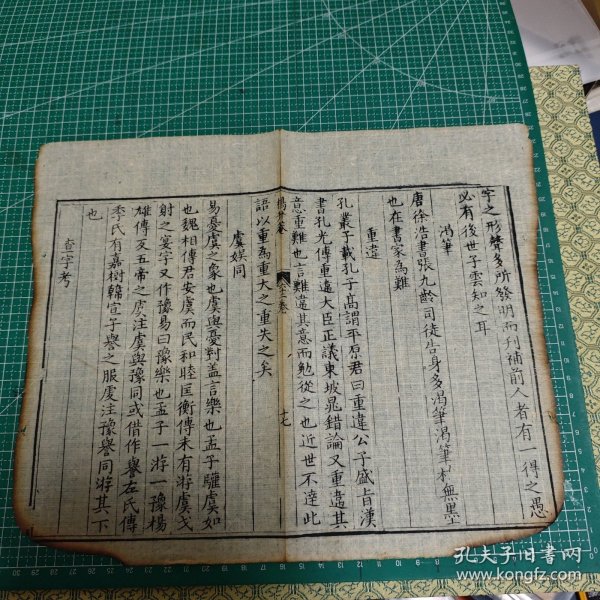 字之形聲多所發明而刋補前人者有一得之愚
必有後世子雲知之耳
渴筆
唐徐浩書張九齡司徒告身多渴筆渴筆枯無墨
也在書家為難
重違
孔叢子載孔子高謂平原君曰重違公子盛旨漢
書孔光傳重違大臣正議東坡晁錯論又重違其
意重難也言難違其意而勉從之也近世不達此
語以重為重大之重失之矣
楊升菴
六十二卷
十七
虞娱同
易憂虞之象也虞與憂對盖言樂也孟子驩虞如
也魏相傳君安虞而民和睦匡衡傳未有游虞弋
射之宴字又作豫易曰豫樂也孟子一游一豫楊
雄傳反五帝之虞注虞與豫同或借作譽左氏傳
季氏有嘉樹韓宣子譽之服虔注豫譽同游其下
也
查字考
孔夫子旧书网
www.kongfz.com